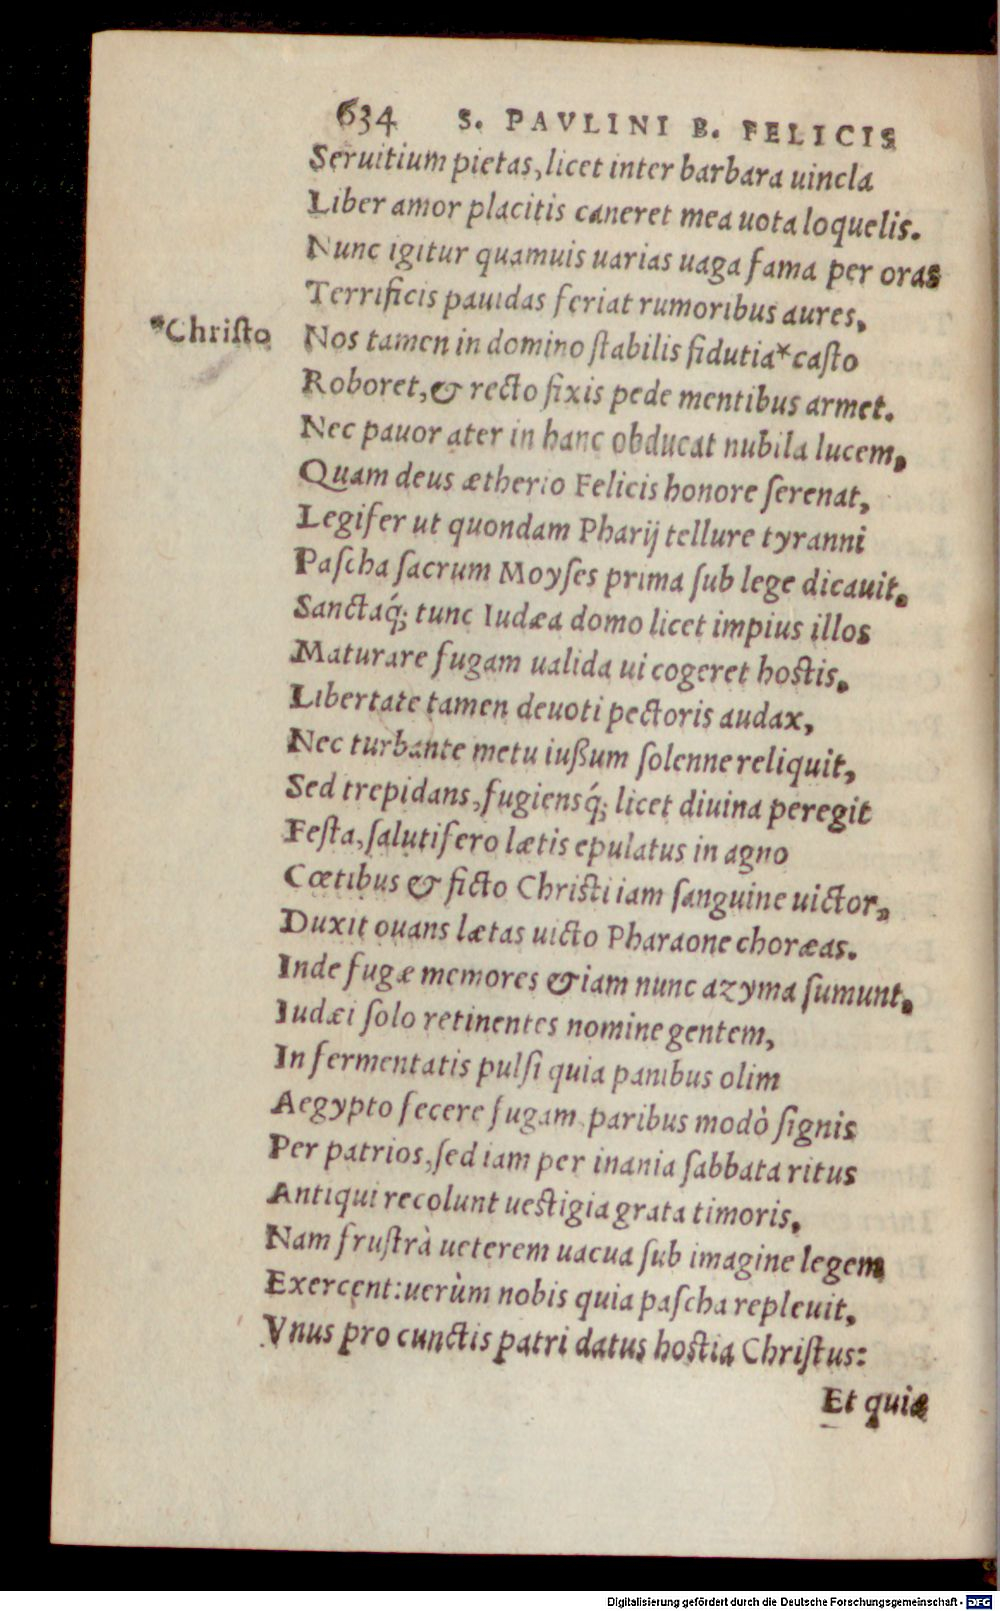 634 S. PAVLINI B. FELICIS
Seruitium pietas, licet inter barbara uincla
Liber amor placitis caneret mea uota loquelis.
Nunc igitur quamuis uarias uaga fama per oras
Terrificis pauidas feriat rumoribus aures,
*Chriſto
Nos tamen in domino ſtabilis fidutia*caſto
Roboret, & recto fixis pede mentibus armet.
Nec pauor ater in hanc obducat nubila lucem,
Quam deus ætherio Felicis honore ſerenat,
Legifer ut quondam Pharij tellure tyranni
Paſcha ſacrum Moyſes prima ſub lege dicauit.
Sanctaq́; tunc Iudæa domo licet impius illos
Maturare fugam ualida ui cogeret hostis,
Libertate tamen deuoti pectoris audax,
Nec turbante metu iußum ſolenne reliquit,
Sed trepidans, fugiensq́; licet diuina peregit
Feſta, ſalutifero lætis epulatus in agno
Cœtibus & ficto Christi iam ſanguine uictor,
Duxit ouans lætas uicto Pharaone choræas.
Inde fugæ memores & iam nunc azyma ſumunt.
Iudæi ſolo retinentes nomine gentem,
In fermentatis pulſi quia panibus olim
Aegypto fecere fugam, paribus modò ſignis
Per patrios, ſed iam per inania ſabbata ritus
Antiqui recolunt uestigia grata timoris.
Nam fruſtrà ueterem uacua ſub imagine legem
Exercent: uerùm nobis quia paſcha repleuit,
Vnus pro cunctis patri datus hostia Chriſtus:
Et quiæ
Digitalisierung gefördert durch die Deutsche Forschungsgemeinschaft - DFG